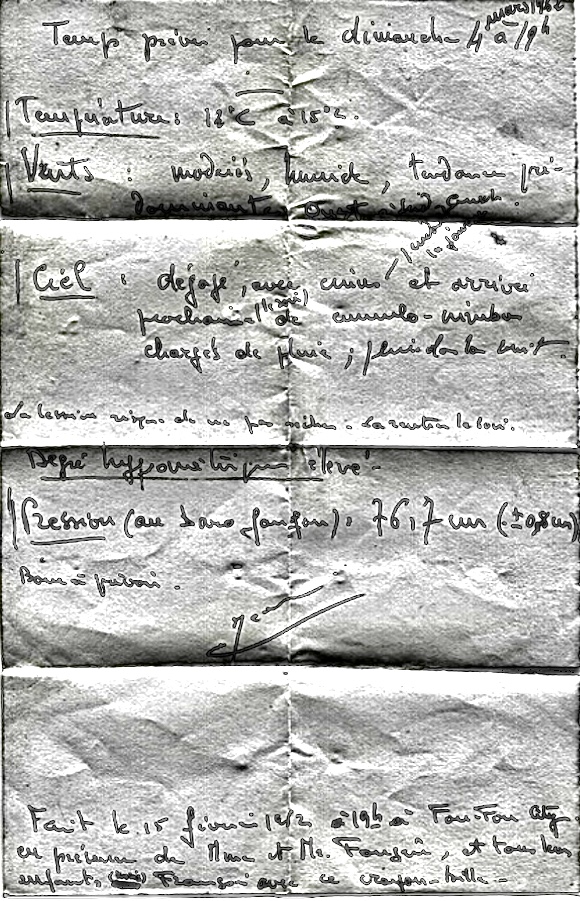 Temps prévu pour le dimanche 4 mars à 19h
Température : 12°C à 15°C.
Vents : modérés, humide, tendance pré-
dominante
Ciel : dégagé, avec cirrus et arrivée
prochaine (le soir) de cumulo-nimbus
chargés de pluie ; pluie dans la nuit.
La lessive risque de ne pas sécher. La rentrer le soir.
Degré hygrométrique élevé.
Pression (au baro ) : 76,7 cm (±0,8cm)
Bonne à prévoir.
Fait le 15 février à 19h à Fou-Fou City
en présence de Mme et Mr. , et tous leurs
enfants François avec ce crayon-bille.